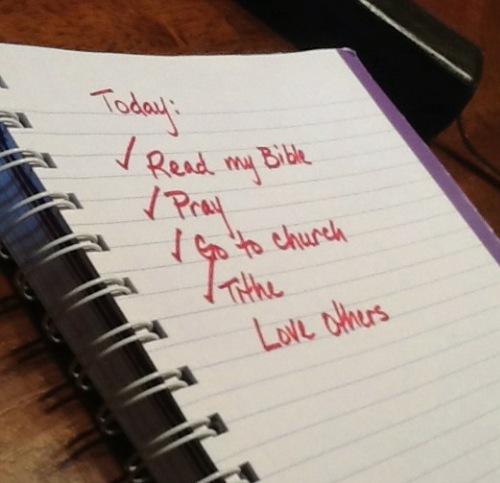 Today:
✓ Read my Bible
✓ Pray
✓ Go to church
✓ Tithe
Love others